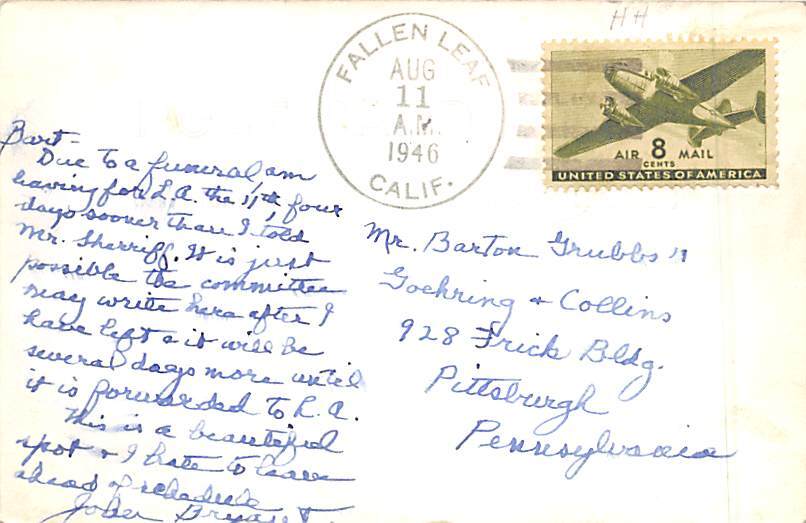 HH
FALLEN LEAF
AUG
11
A.M.
1946
CALIF.
AIR 8 MAIL
CENTS
UNITED STATES OF AMERICA
Bart -
Due to a funeral, am
leaving for L.A. the 11th, four
days sooner than I told
Mr. Sherriff. It is just
possible the committee
may write here after I
have left & it will be
several days more until
it is forwarded to L.A.
This is a beautiful
spot & I hate to leave
ahead of schedule
Bryant
Mr. Barton Grubbs
Goehring & Collins
928 Frick Bldg.
Pittsburgh
Pennsylvania